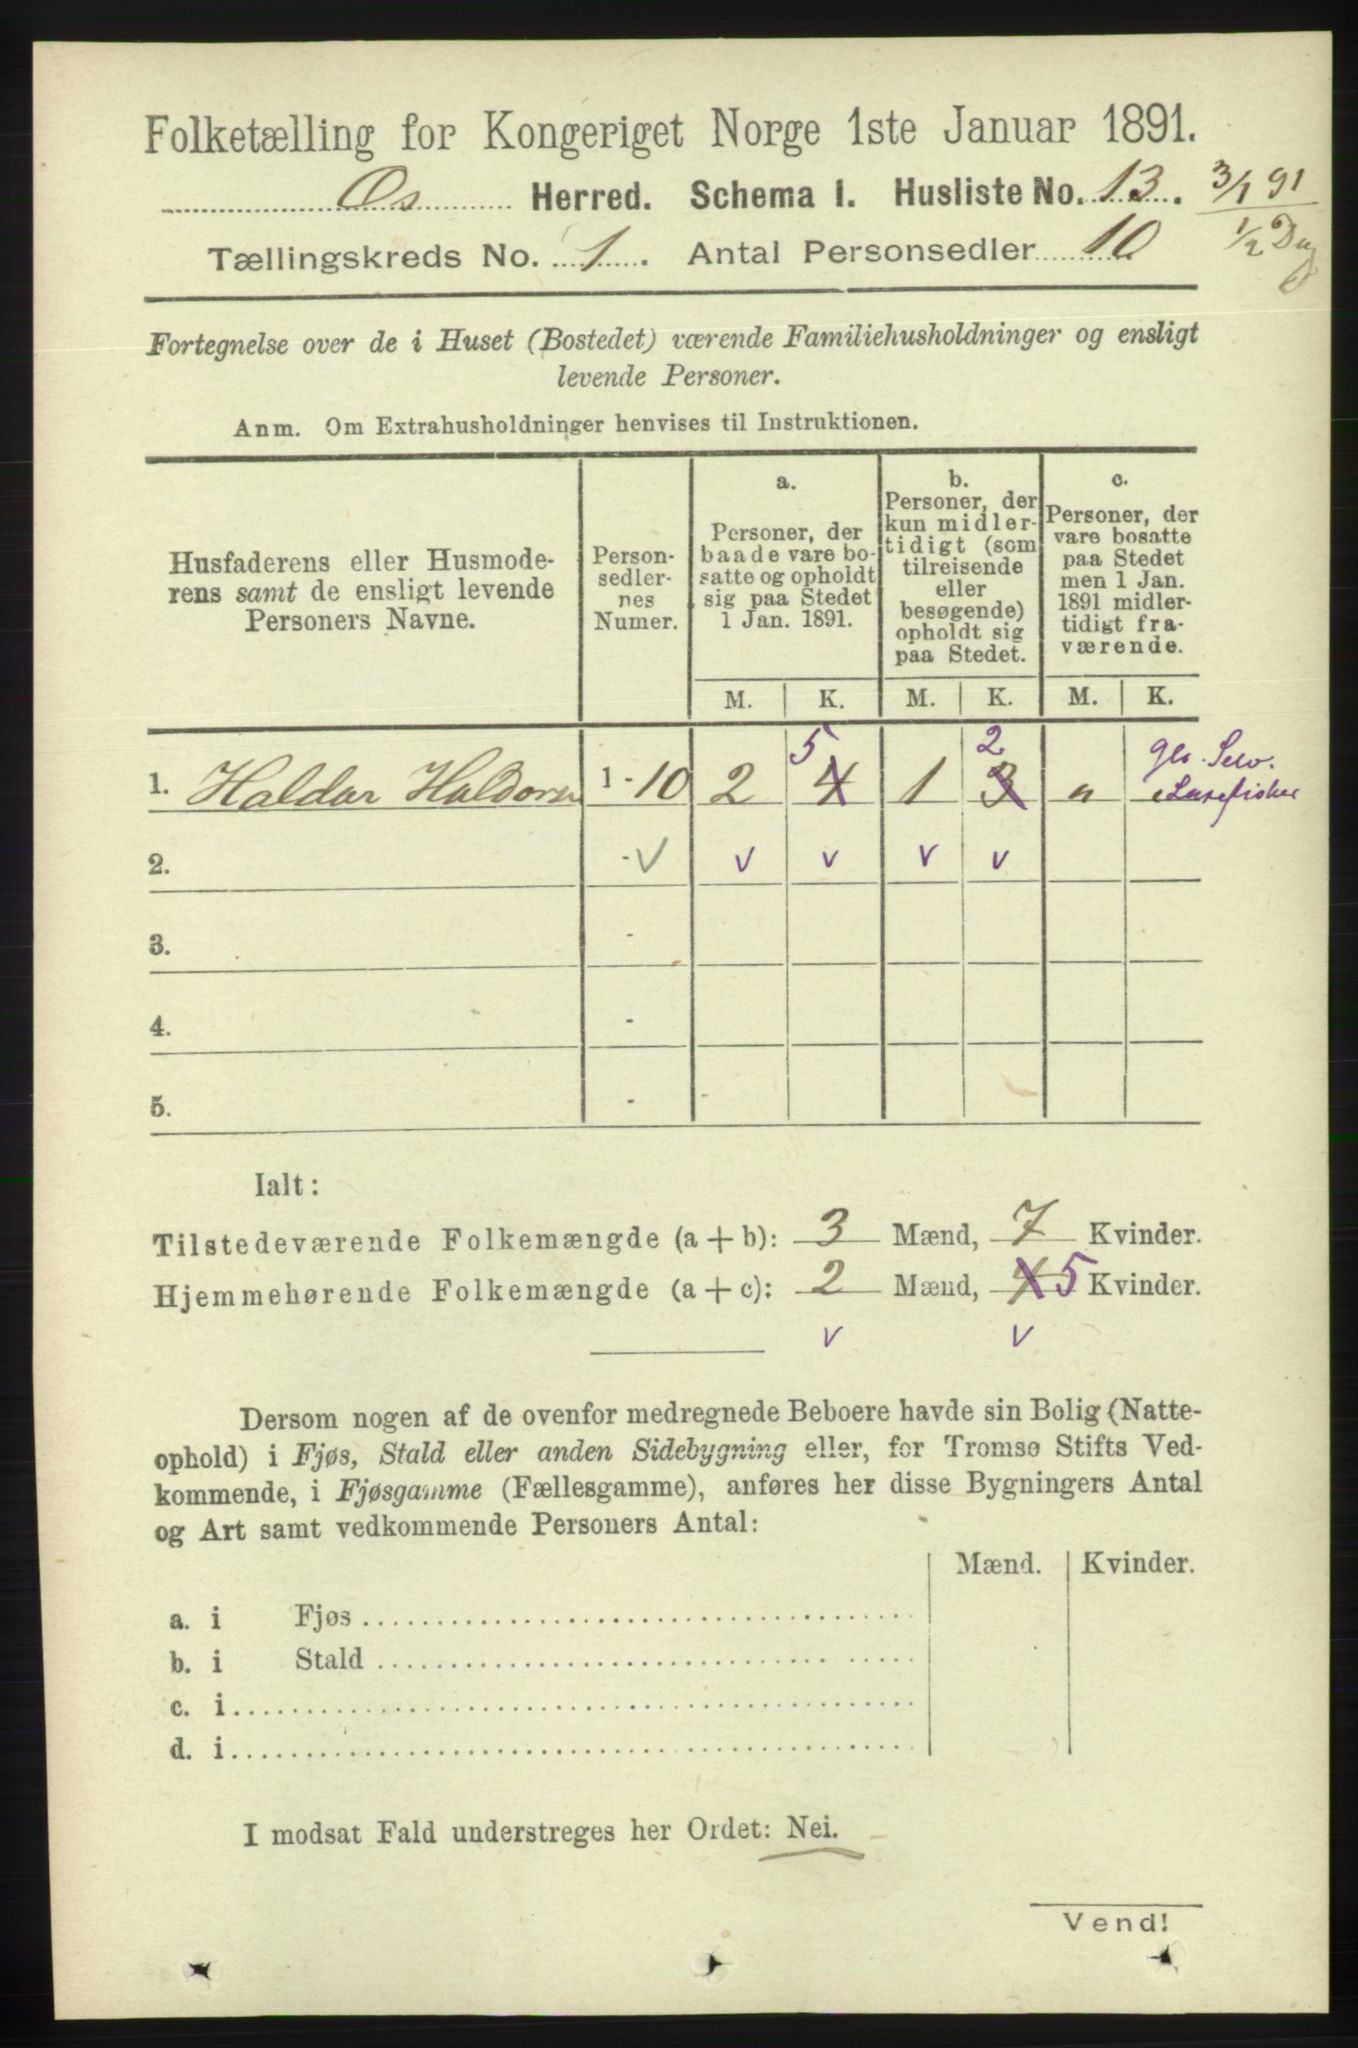 Folketælling for Kongeriget Norge 1ste Januar 1891.
Os Herred. Schema I. Husliste No. 13.
3/1 91
Tællingskreds No. 1. Antal Personsedler 10
1/2 Dag
Fortegnelse over de i Huset (Bostedet) værende Familiehusholdninger og ensligt
levende Personer.
Anm. Om Extrahusholdninger henvises til Instruktionen.
Husfaderens eller Husmode-
rens samt de ensligt levende
Personers Navne.
Person-
sedler-
nes
Numer.
a.
Personer, der
baade vare bo-
satte og opholdt
sig paa Stedet
1 Jan. 1891.
b.
Personer, der
kun midler-
tidigt (som
tilreisende
eller
besøgende)
opholdt sig
paa Stedet.
c.
Personer, der
vare bosatte
paa Stedet
men 1 Jan.
1891 midler-
tidigt fra-
værende.
M. K. M. K. M. K.
5 2
1. Haldor Haldorsen 1 - 10 2 4 1 3 "
2. - v v v v v
3. -
4. -
5. -
Ialt:
Tilstedeværende Folkemængde (a + b): 3 Mænd, 7 Kvinder.
Hjemmehørende Folkemængde (a + c): 2 Mænd, 4 5 Kvinder.
v v
Dersom nogen af de ovenfor medregnede Beboere havde sin Bolig (Natte-
ophold) i Fjøs, Stald eller anden Sidebygning eller, for Tromsø Stifts Ved-
kommende, i Fjøsgamme (Fællesgamme), anføres her disse Bygningers Antal
og Art samt vedkommende Personers Antal:
Mænd. Kvinder.
a. i Fjøs
b. i Stald
c. i
d. i
I modsat Fald understreges her Ordet: Nei.
Vend!